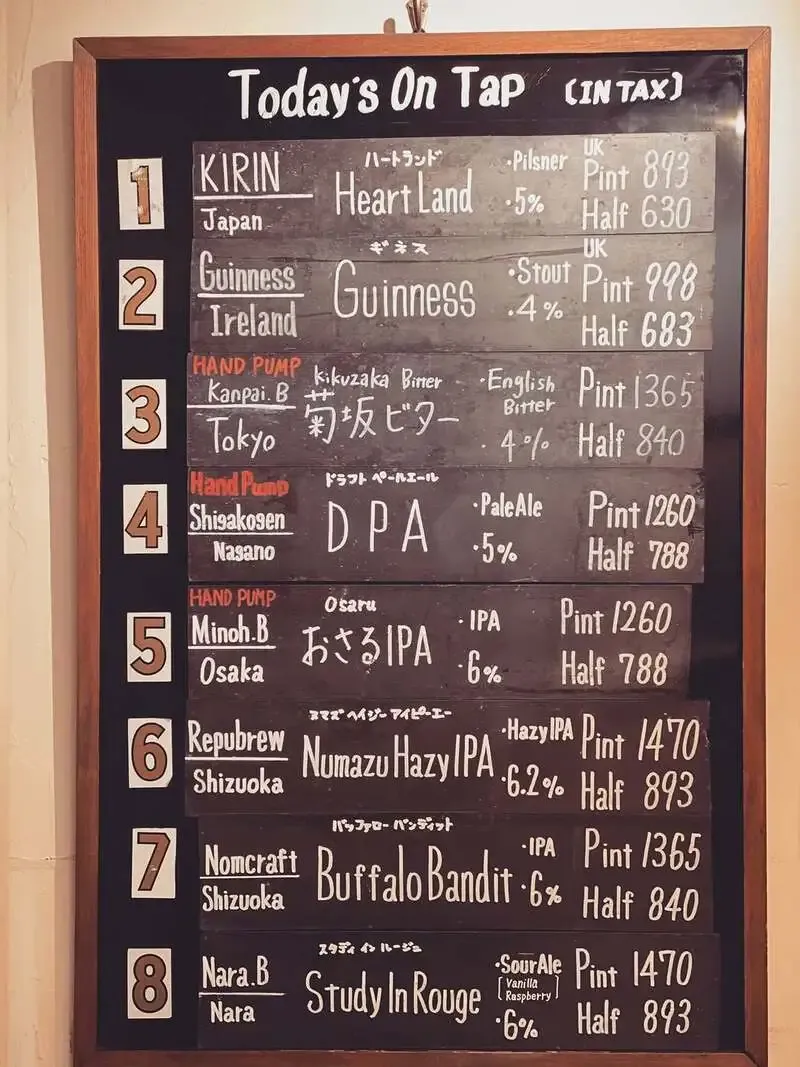 Today's On Tap (IN TAX)
1
KIRIN
Japan
ハートランド
Heart Land
・Pilsner
・5%
UK
Pint 893
Half 630
2
Guinness
Ireland
ギネス
Guinness
・Stout
・4%
UK
Pint 998
Half 683
3
HAND PUMP
Kanpai.B
Tokyo
Kikuzaka Bitter
菊坂ビター
・English
Bitter
・4%
Pint 1365
Half 840
4
Hand Pump
Shigakogen
Nagano
ドラフト ペールエール
DPA
・Pale Ale
・5%
Pint 1260
Half 788
5
HAND PUMP
Minoh.B
Osaka
Osaru
おさるIPA
・IPA
・6%
Pint 1260
Half 788
6
Repubrew
Shizuoka
ヌマズ ヘイジー アイピーエー
Numazu Hazy IPA
・Hazy IPA
・6.2%
Pint 1470
Half 893
7
Nomcraft
Shizuoka
バッファロー バンディット
Buffalo Bandit
・IPA
・6%
Pint 1365
Half 840
8
Nara.B
Nara
スタディ イン ルージュ
Study In Rouge
・Sour Ale
[Vanilla
Raspberry]
・6%
Pint 1470
Half 893